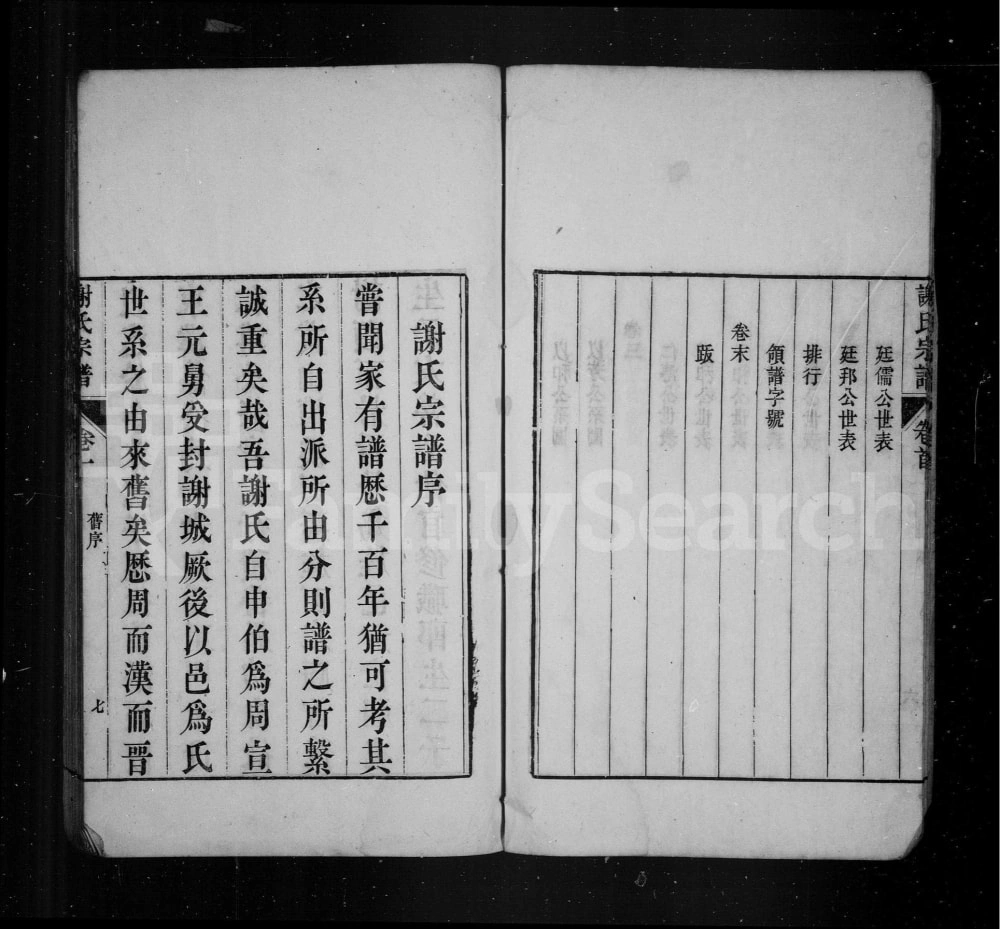 謝氏宗譜
卷首
廷儒公世表
廷邦公世表
排行
領譜字號
卷末
跋
謝氏宗譜序
嘗聞家有譜歷千百年猶可考其
系所自出派所由分則譜之所繫
誠重矣哉吾謝氏自申伯爲周宣
王元舅受封謝城厥後以邑爲氏
世系之由來舊矣歷周而漢而晉
謝氏宗譜
卷一
舊序
七
FamilySearch